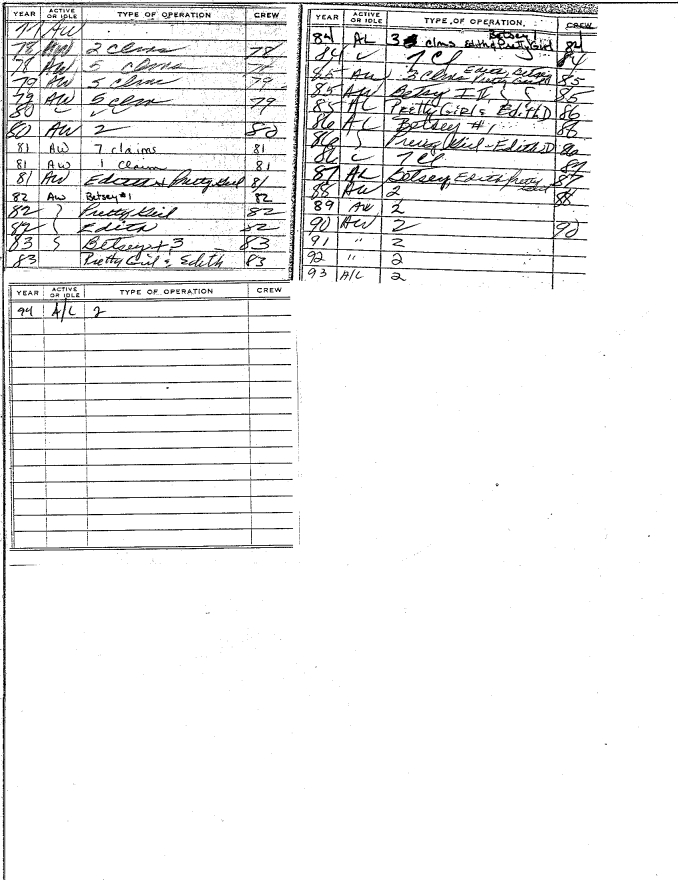 YEAR ACTIVE OR IDLE TYPE OF OPERATION CREW
77 AW
78 AW 2 claims 78
78 AW 5 claims 78
79 AW 5 claims 79
79 AW 5 claim 79
80 ✓ ✓
80 AW 2 80
81 AW 7 claims 81
81 AW 1 claim 81
81 AW Edith + Pretty Girl 81
82 AW Betsey #1 82
82 } Pretty Girl 82
82 } Edith 82
83 Betsey + 3 83
83 Pretty Girl & Edith 83
YEAR ACTIVE OR IDLE TYPE OF OPERATION CREW
84 AL 3 claims Edith & Pretty Girl Betsey 1 84
84 ✓ 7 Cl 84
85 AW 3 Claims Edith, Betsey Pretty Girl 85
85 AW Betsy I II 85
85 AL Pretty Girl & Edith D 86
86 AL Betsey #1 86
86 } Pretty Girl - Edith D 86
86 ✓ 7 Cl
87 AL Betsey, Edith, Pretty Girl 87
88 AW 2 88
89 AW 2
90 AW 2 90
91 " 2
92 " 2
93 A/L 2
YEAR ACTIVE OR IDLE TYPE OF OPERATION CREW
94 A/L 2